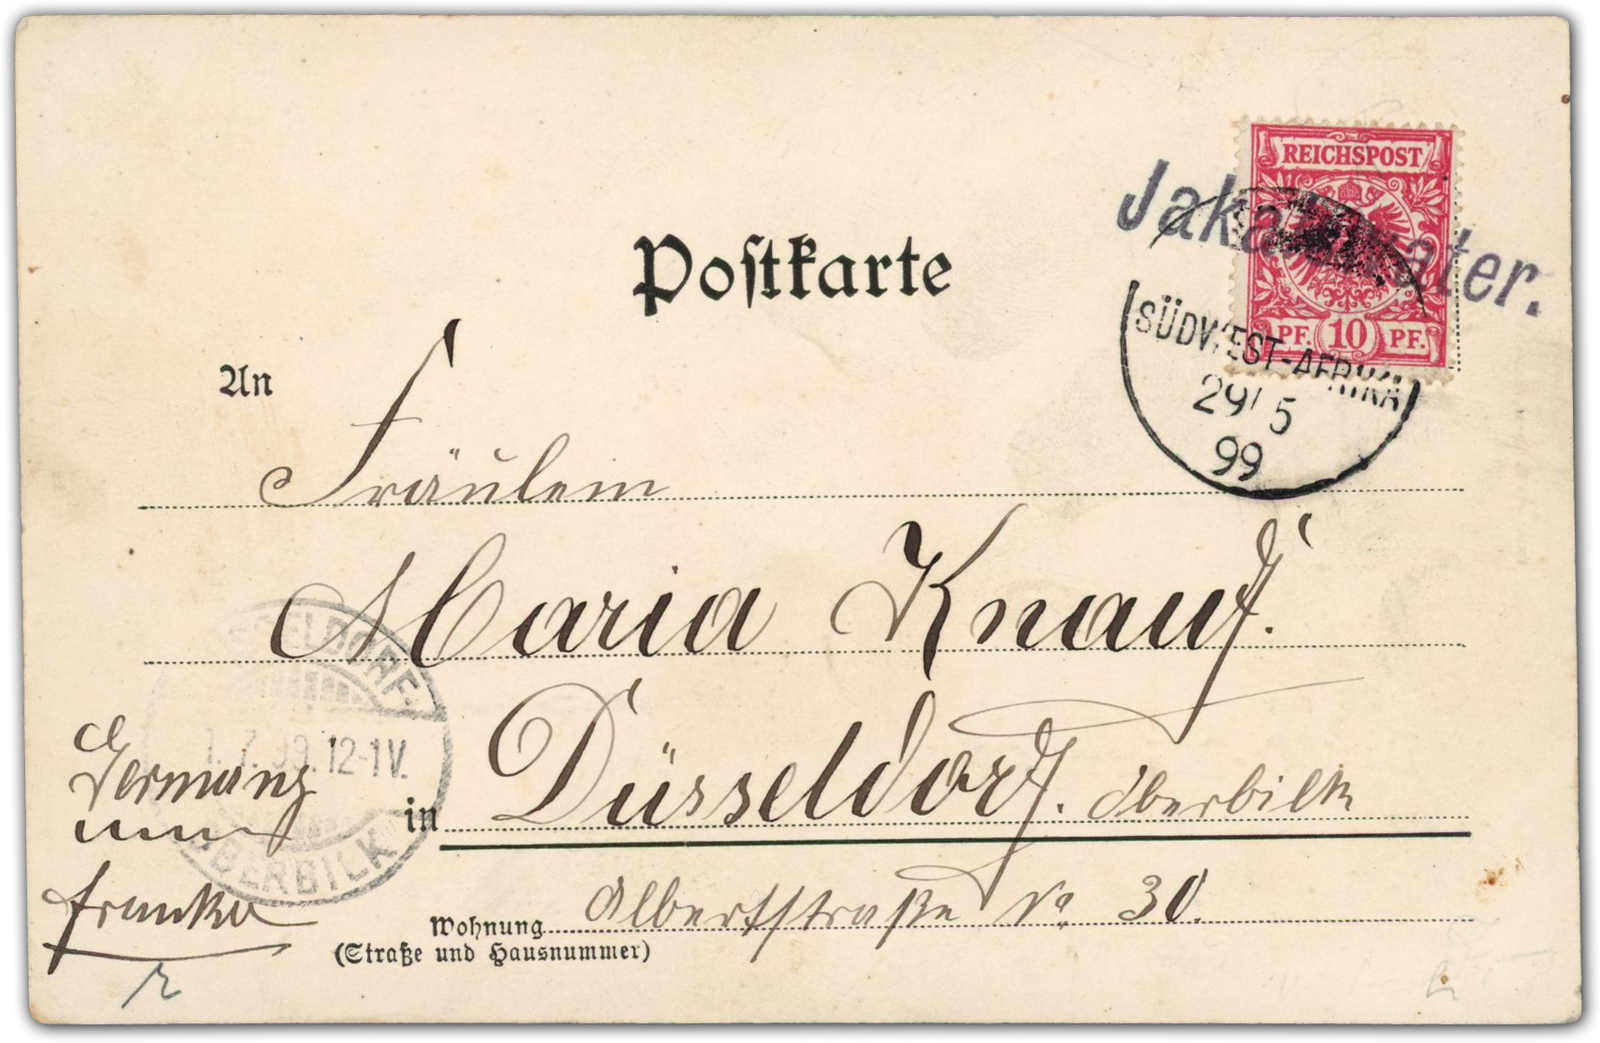 REICHSPOST
PF. 10 PF.
Jakalswater.
SÜDWEST-AFRIKA
29/5
99
Postkarte
An
Fräulein
Maria Knauf.
in Düsseldorf. Oberbilk
Wohnung Albertstraße No 30.
(Straße und Hausnummer)
DÜSSELDORF-
1.7.99.12-1V.
OBERBILK
Germany
franko